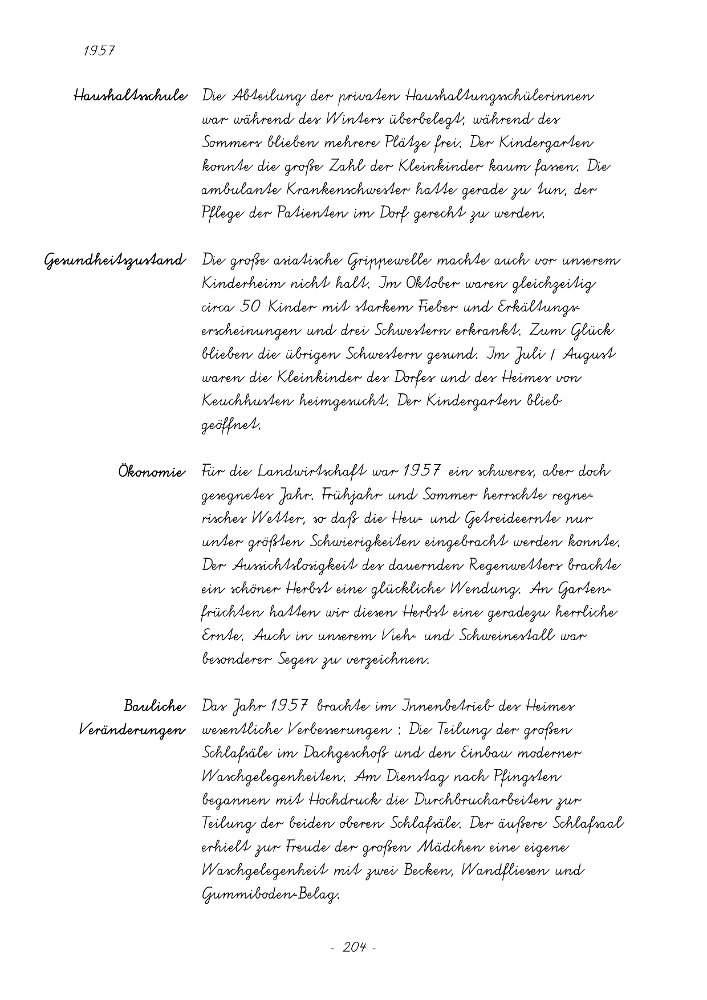 1957
Haushaltsschule Die Abteilung der privaten Haushaltungsschülerinnen
war während des Winters überbelegt; während des
Sommers blieben mehrere Plätze frei. Der Kindergarten
konnte die große Zahl der Kleinkinder kaum fassen. Die
ambulante Krankenschwester hatte gerade zu tun, der
Pflege der Patienten im Dorf gerecht zu werden.
Gesundheitszustand Die große asiatische Grippewelle machte auch vor unserem
Kinderheim nicht halt. Im Oktober waren gleichzeitig
circa 50 Kinder mit starkem Fieber und Erkältungs-
erscheinungen und drei Schwestern erkrankt. Zum Glück
blieben die übrigen Schwestern gesund. Im Juli / August
waren die Kleinkinder des Dorfes und des Heimes von
Keuchhusten heimgesucht. Der Kindergarten blieb
geöffnet.
Ökonomie Für die Landwirtschaft war 1957 ein schweres, aber doch
gesegnetes Jahr. Frühjahr und Sommer herrschte regne-
risches Wetter, so daß die Heu- und Getreideernte nur
unter größten Schwierigkeiten eingebracht werden konnte.
Der Aussichtslosigkeit des dauernden Regenwetters brachte
ein schöner Herbst eine glückliche Wendung. An Garten-
früchten hatten wir diesen Herbst eine geradezu herrliche
Ernte. Auch in unserem Vieh- und Schweinestall war
besonderer Segen zu verzeichnen.
Bauliche Das Jahr 1957 brachte im Innenbetrieb des Heimes
Veränderungen wesentliche Verbesserungen : Die Teilung der großen
Schlafsäle im Dachgeschoß und den Einbau moderner
Waschgelegenheiten. Am Dienstag nach Pfingsten
begannen mit Hochdruck die Durchbrucharbeiten zur
Teilung der beiden oberen Schlafsäle. Der äußere Schlafsaal
erhielt zur Freude der großen Mädchen eine eigene
Waschgelegenheit mit zwei Becken, Wandfliesen und
Gummiboden-Belag.
- 204 -